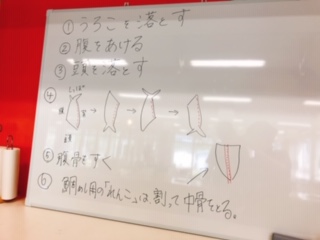 ① うろこを落とす
② 腹をあける
③ 頭を落とす
④
⑤ 腹骨をすく
⑥ 鯛めし用の「れんこ」は割って中骨をとる。